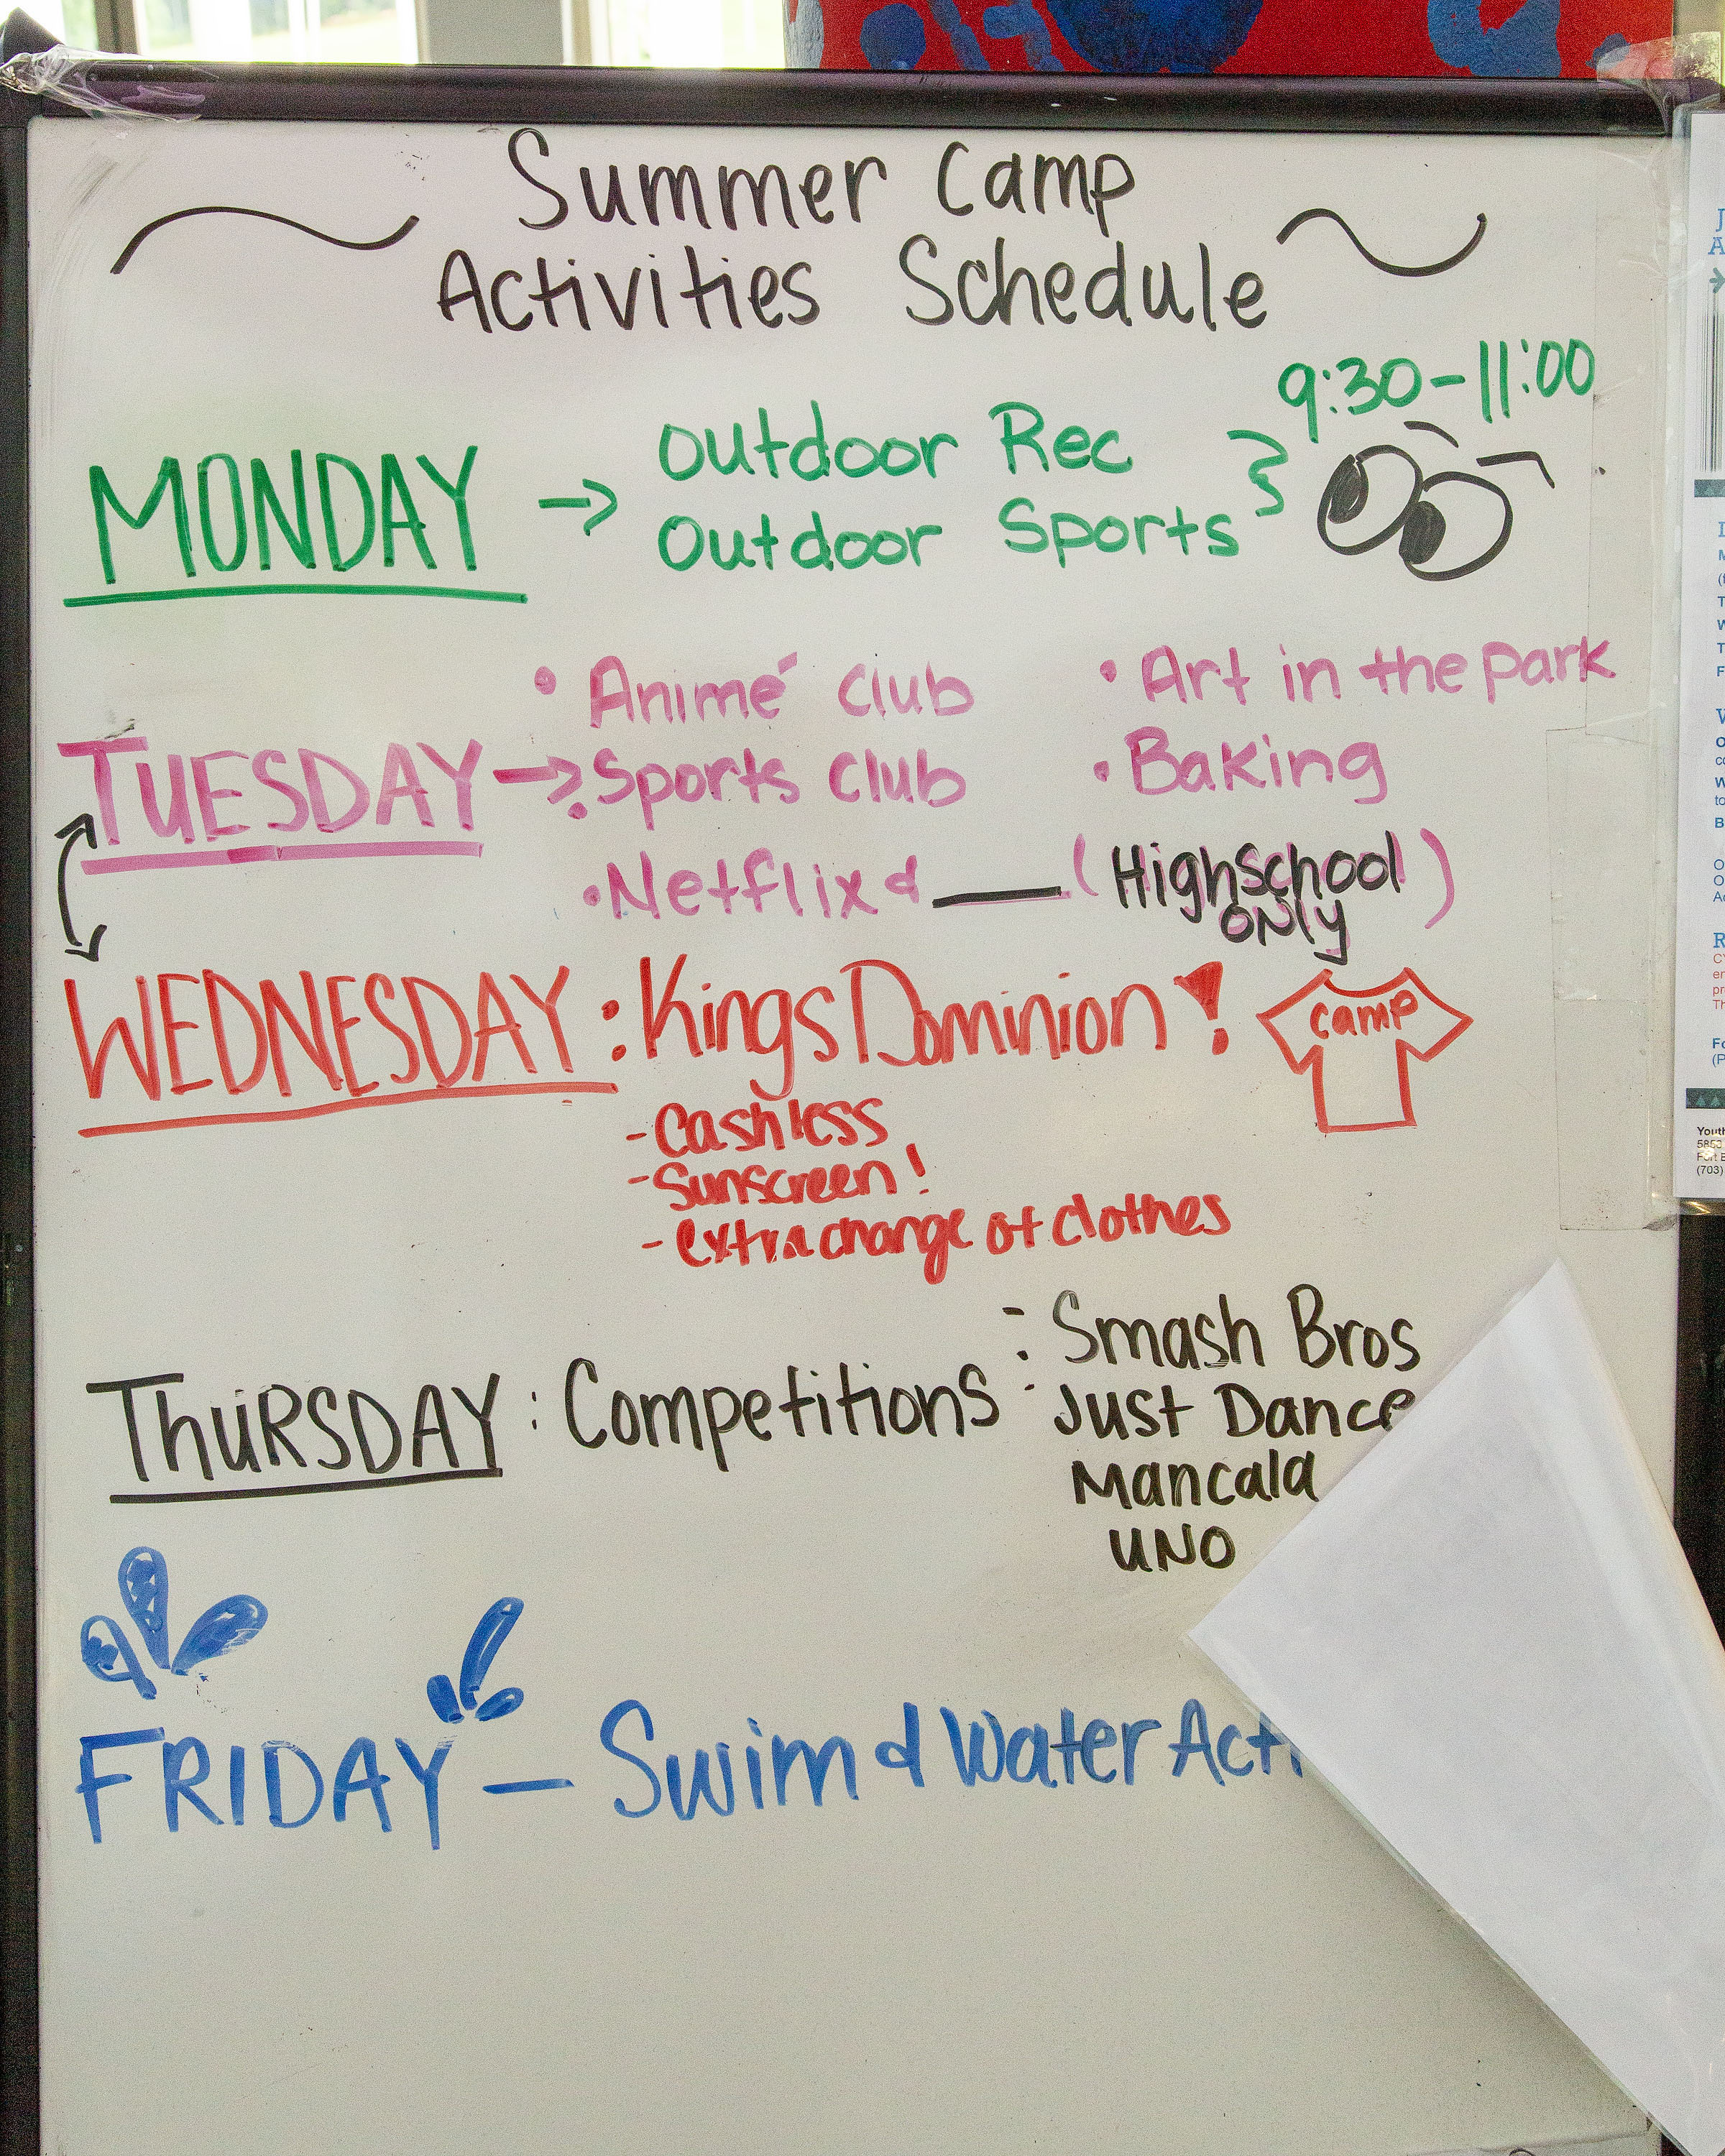 Summer Camp
Activities Schedule
9:30-11:00
MONDAY → Outdoor Rec
Outdoor Sports
TUESDAY →
• Animé Club
• Sports Club
• Netflix & ___ (Highschool ONLY)
• Art in the park
• Baking
WEDNESDAY : Kings Dominion!
camp
- Cashless
- Sunscreen!
- extra change of clothes
THURSDAY : Competitions :
- Smash Bros
Just Dance
Mancala
UNO
FRIDAY — Swim & Water Acti
Youth
(703)